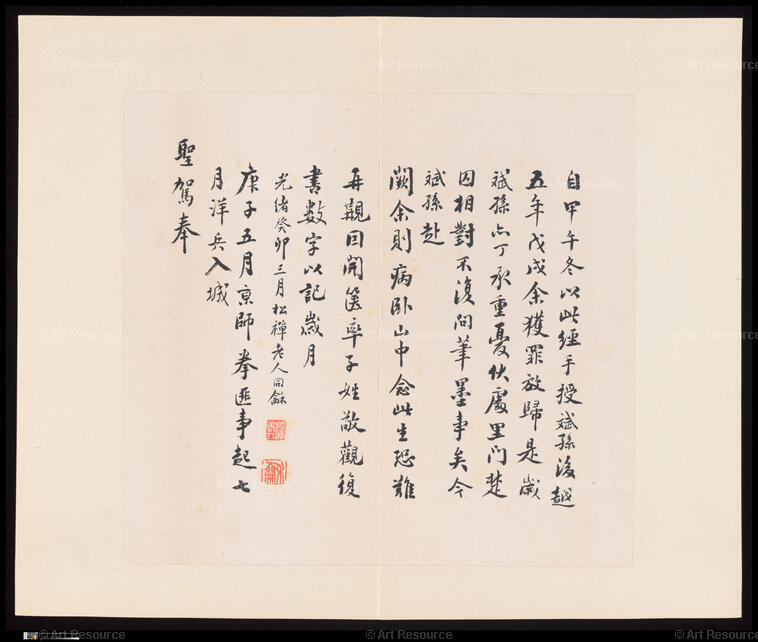 自甲午冬以此經手授斌孫後越
五年戊戌余獲罪放歸是歲
斌孫亦丁承重憂伏處里門楚
囚相對不復問筆墨事矣今
斌孫赴
闕余則病卧山中念此生恐難
再觀因開篋率子姓敬觀復
書數字以記歲月
光緒癸卯三月松禪老人同龢
庚子五月京師拳匪事起七
月洋兵入城
聖駕奉
© Art Resource
© Art Resource
© Art Resource
© Art Resource
© Art Resource
© Art Resource